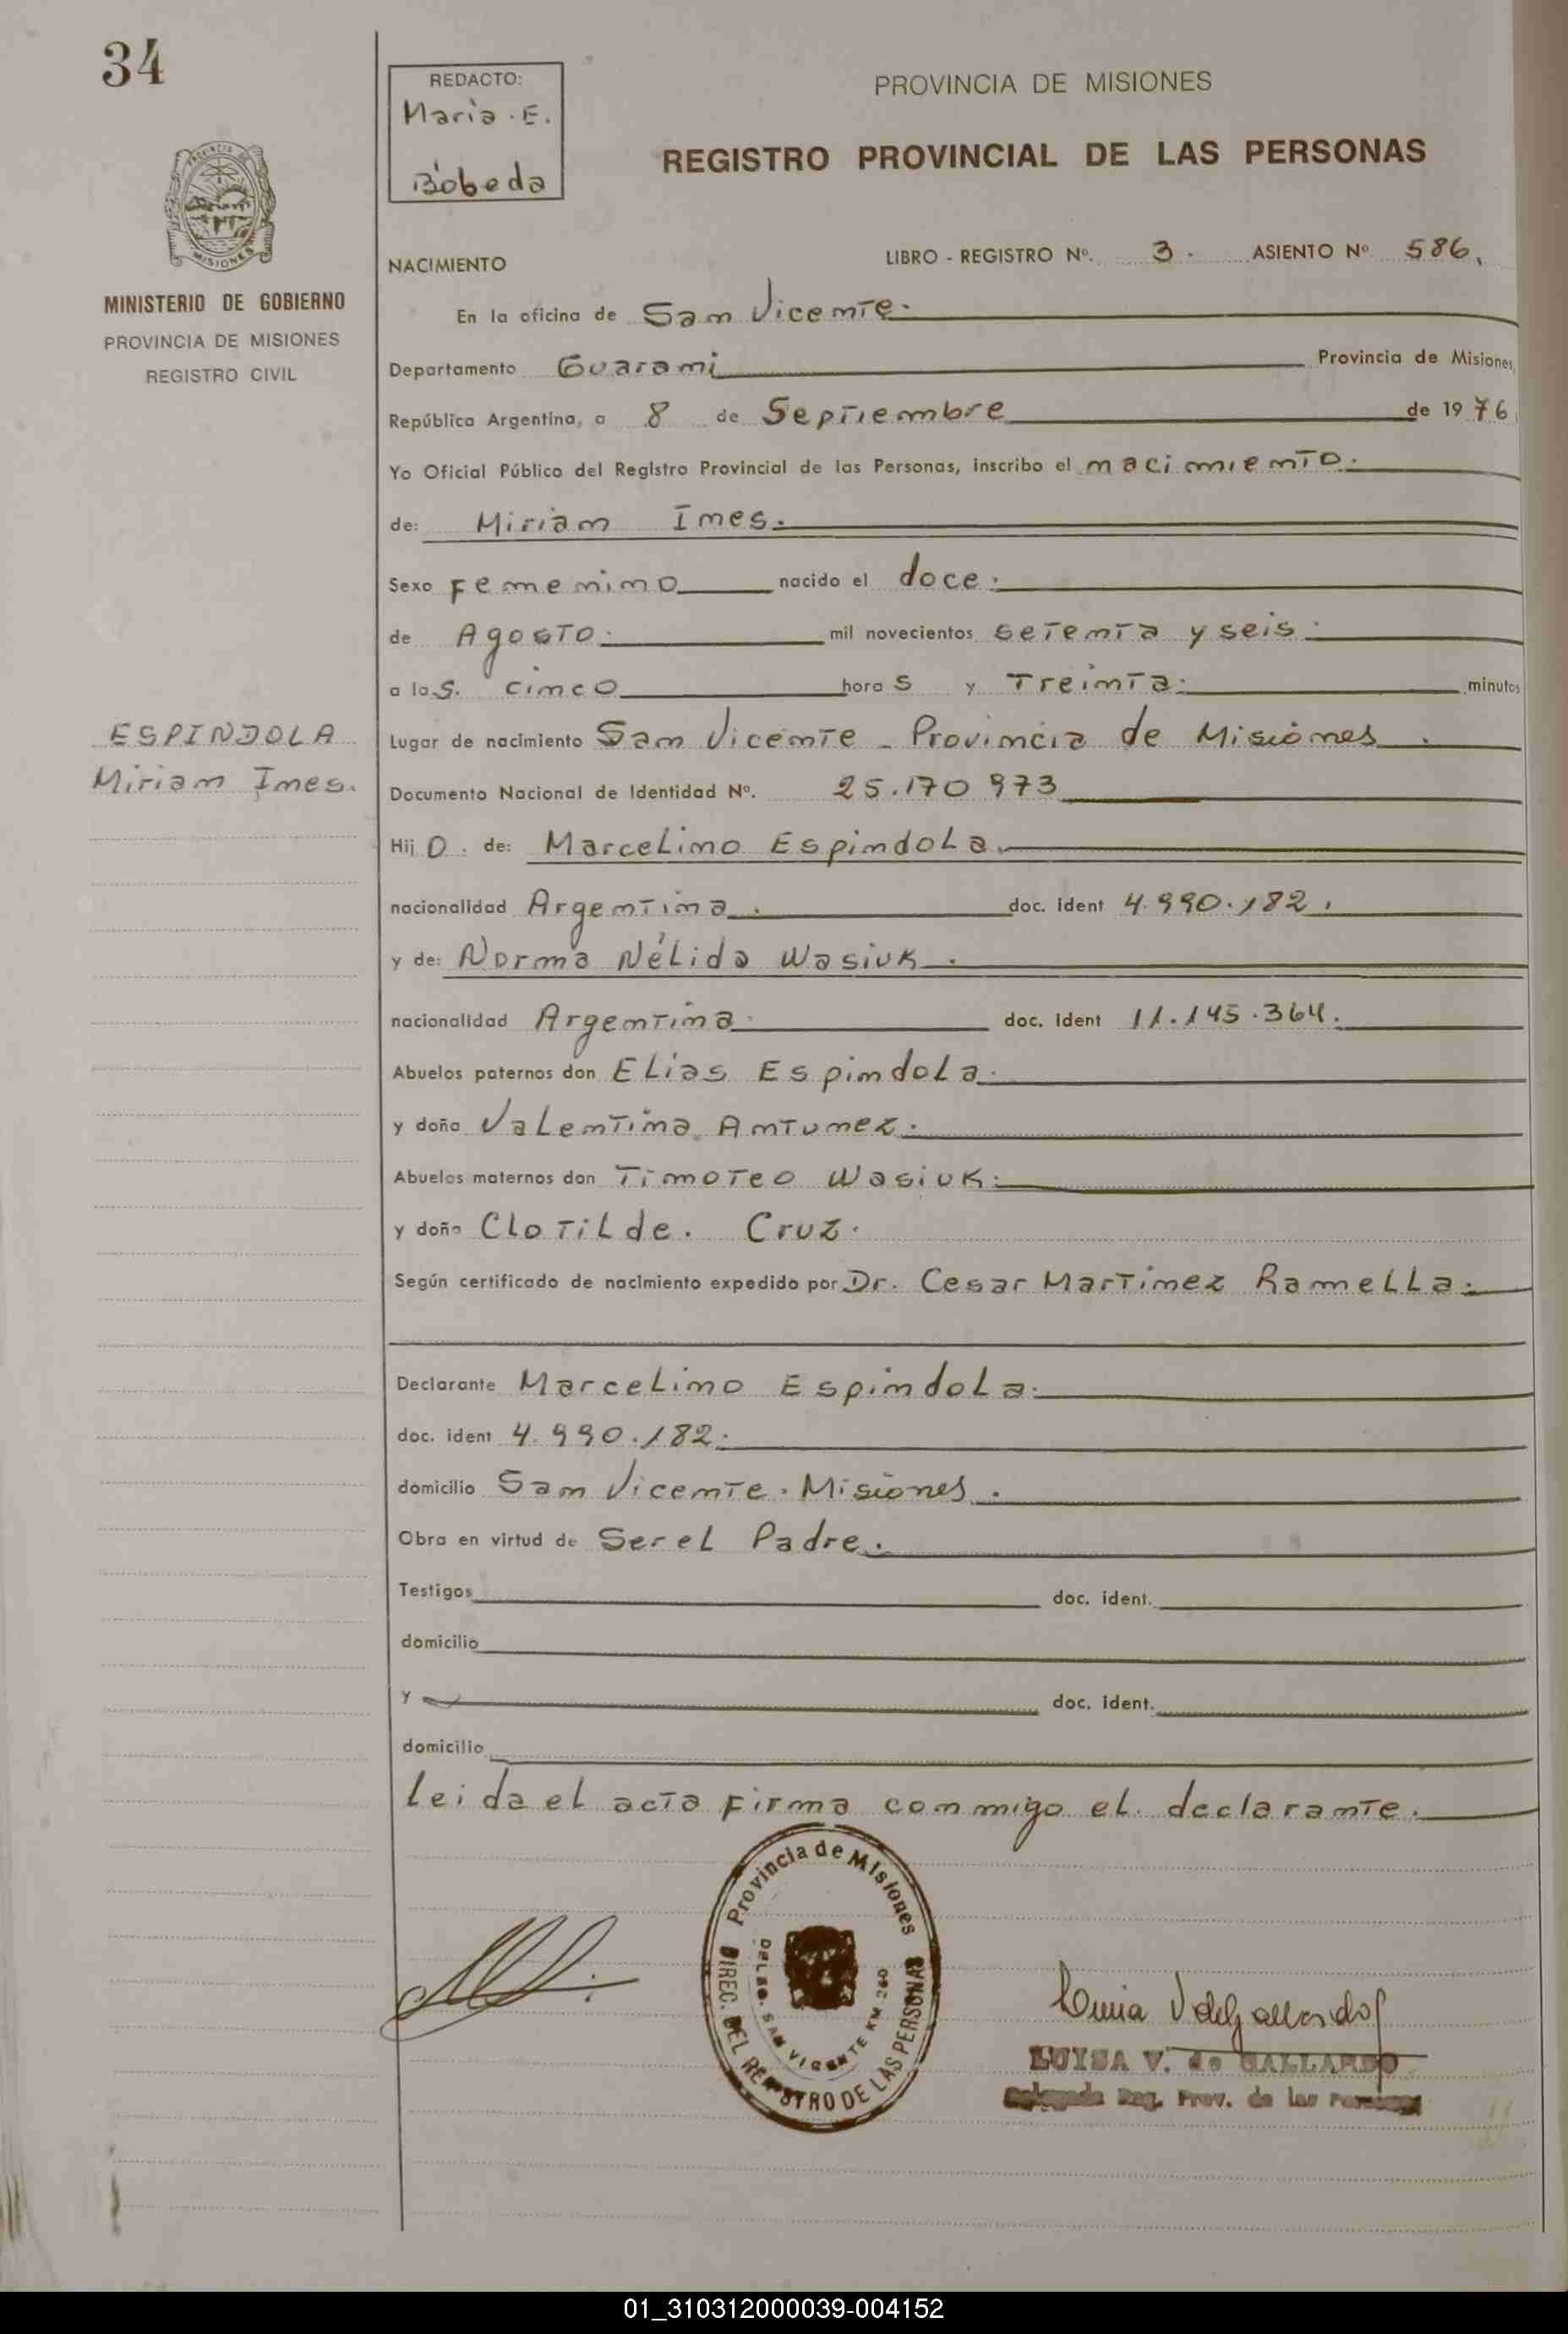 34
REDACTO:
Maria . E.
Bobeda
PROVINCIA DE MISIONES
REGISTRO PROVINCIAL DE LAS PERSONAS
PROVINCIA DE
MISIONES
MINISTERIO DE GOBIERNO
PROVINCIA DE MISIONES
REGISTRO CIVIL
NACIMIENTO
LIBRO - REGISTRO Nº. 3. ASIENTO Nº 586.
En la oficina de San Vicente.
Departamento Guarani Provincia de Misiones,
República Argentina, a 8 de Septiembre de 1976
Yo Oficial Público del Registro Provincial de las Personas, inscribo el nacimiento.
de: Miriam Ines.
Sexo Femenino nacido el doce.
de Agosto. mil novecientos setenta y seis.
a las. cinco horas y Treinta. minutos
ESPINDOLA
Miriam Ines.
Lugar de nacimiento San Vicente - Provincia de Misiones.
Documento Nacional de Identidad Nº. 25.170 973
Hij O. de: Marcelino Espindola.
nacionalidad Argentina. doc. ident 4.990.182.
y de: Norma Nélida Wasiuk.
nacionalidad Argentina. doc. ident 11.145.364.
Abuelos paternos don Elias Espindola.
y doña Valentina Antunez.
Abuelos maternos don Timoteo Wasiuk.
y doña Clotilde. Cruz.
Según certificado de nacimiento expedido por Dr. Cesar Martinez Ramella.
Declarante Marcelino Espindola.
doc. ident 4.990.182.
domicilio San Vicente. Misiones.
Obra en virtud de Ser el Padre.
Testigos doc. ident.
domicilio
y doc. ident.
domicilio
leida el acta firma conmigo el. declarante.
Provincia de Misiones
DIREC. DEL REGISTRO DE LAS PERSONAS
DELEG. SAN VICENTE KM 260
LUISA V. de GALLARDO
Delegada Reg. Prov. de las Personas
01_310312000039-004152